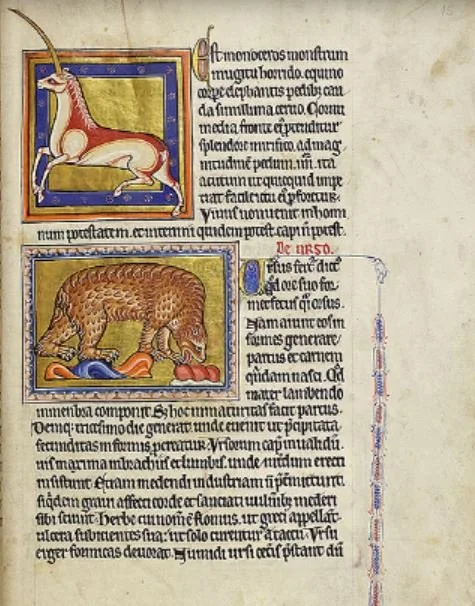 Est monoceros monstrum
mugitu horrido, equino
corpe elephantis pedib; cau
da simillima ceruo. Cornu
media fronte ei' ptenditur
splendore mirifico, ad mag
nitudinē pedum .iiii. ita
acutum ut quicquid impe
tat facile ictu ei' pforetur.
Viuus non uenit in homi
num potestatem. et interimi quidem potest. capi ñ potest.
De urso.
Ursus fert' dict'
qd ore suo for
met fetus q̄i orsus.
Nam aiunt eos in
formes generare
partus et carnem
quādam nasci. Qd
mater lambendo
in membra componit. S; hoc inmaturitas facit partus.
Deniq; tricesimo die generat. unde euenit ut p̄cipitata
fecunditas informis pcreatur. Vrsorum cap' inualidū.
uis maxima in brachiis et lumbis. unde int'dum erecti
insistunt. Etiam medendi industriam ñ p̄t'mittunt.
Siqdem graui affecti corde et sauciati uulnib; mederi
sibi sciunt. Herbe cui nom̄ ē flomus. ut greci appellāt.
ulcera subicientes sua. ut solo curentur a tactu. Vrsus
eger formicas deuorat. Numidi ursi cet'is p̄stant dū